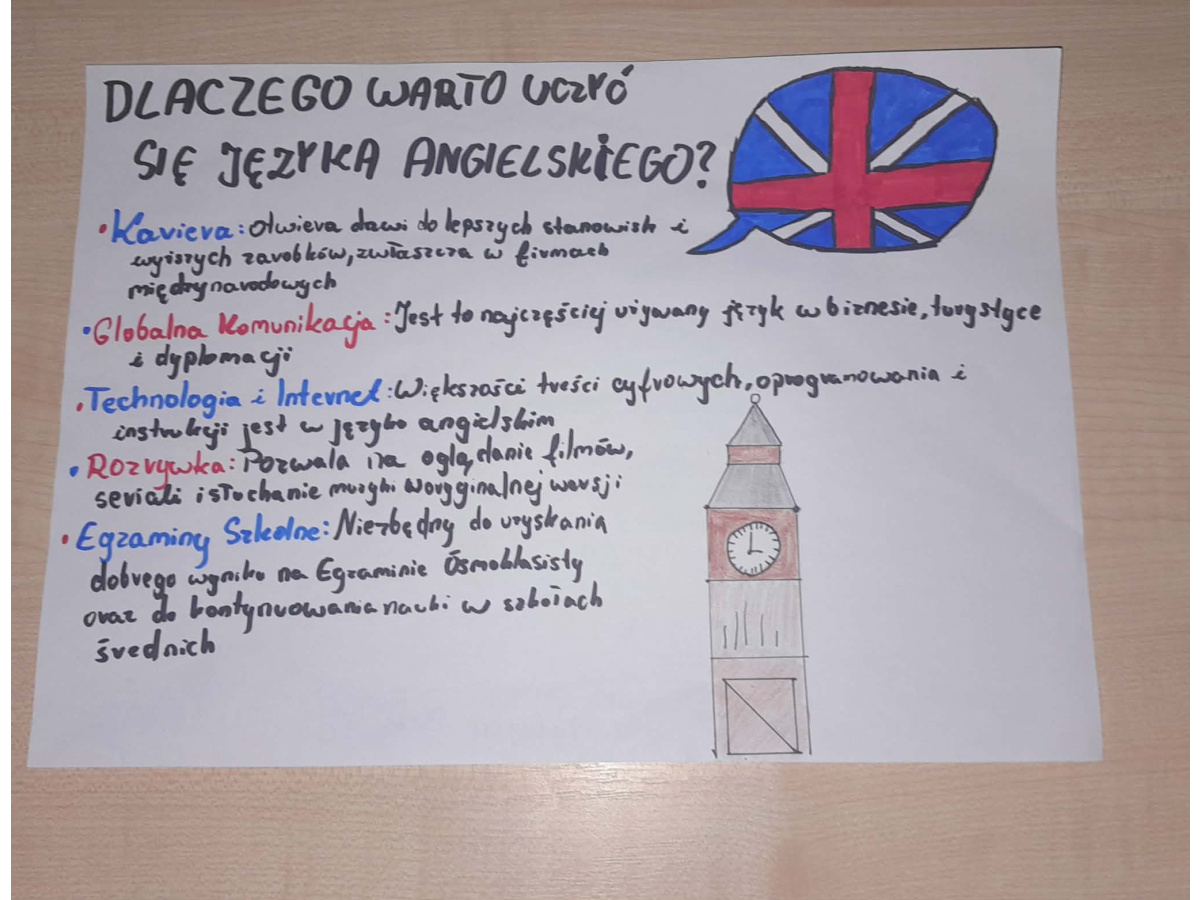 DLACZEGO WARTO UCZYĆ
SIĘ JĘZYKA ANGIELSKIEGO?
• Kariera: Otwiera dzwi do lepszych stanowisk i
wyższych zarobków, zwłaszcza w firmach
międzynarodowych
• Globalna Komunikacja: Jest to najczęściej używany język w biznesie, turystyce
i dyplomacji
• Technologia i Internet: Większości treści cyfrowych, oprogramowania i
instrukcji jest w języko angielskim
• Rozrywka: Pozwala na oglądanie filmów,
seriali i słuchanie muzyki w oryginalnej wersji
• Egzaminy Szkolne: Niezbędny do uzyskania
dobrego wyniku na Egzaminie Ósmoklasisty
oraz do kontynuowania nauki w szkołach
średnich